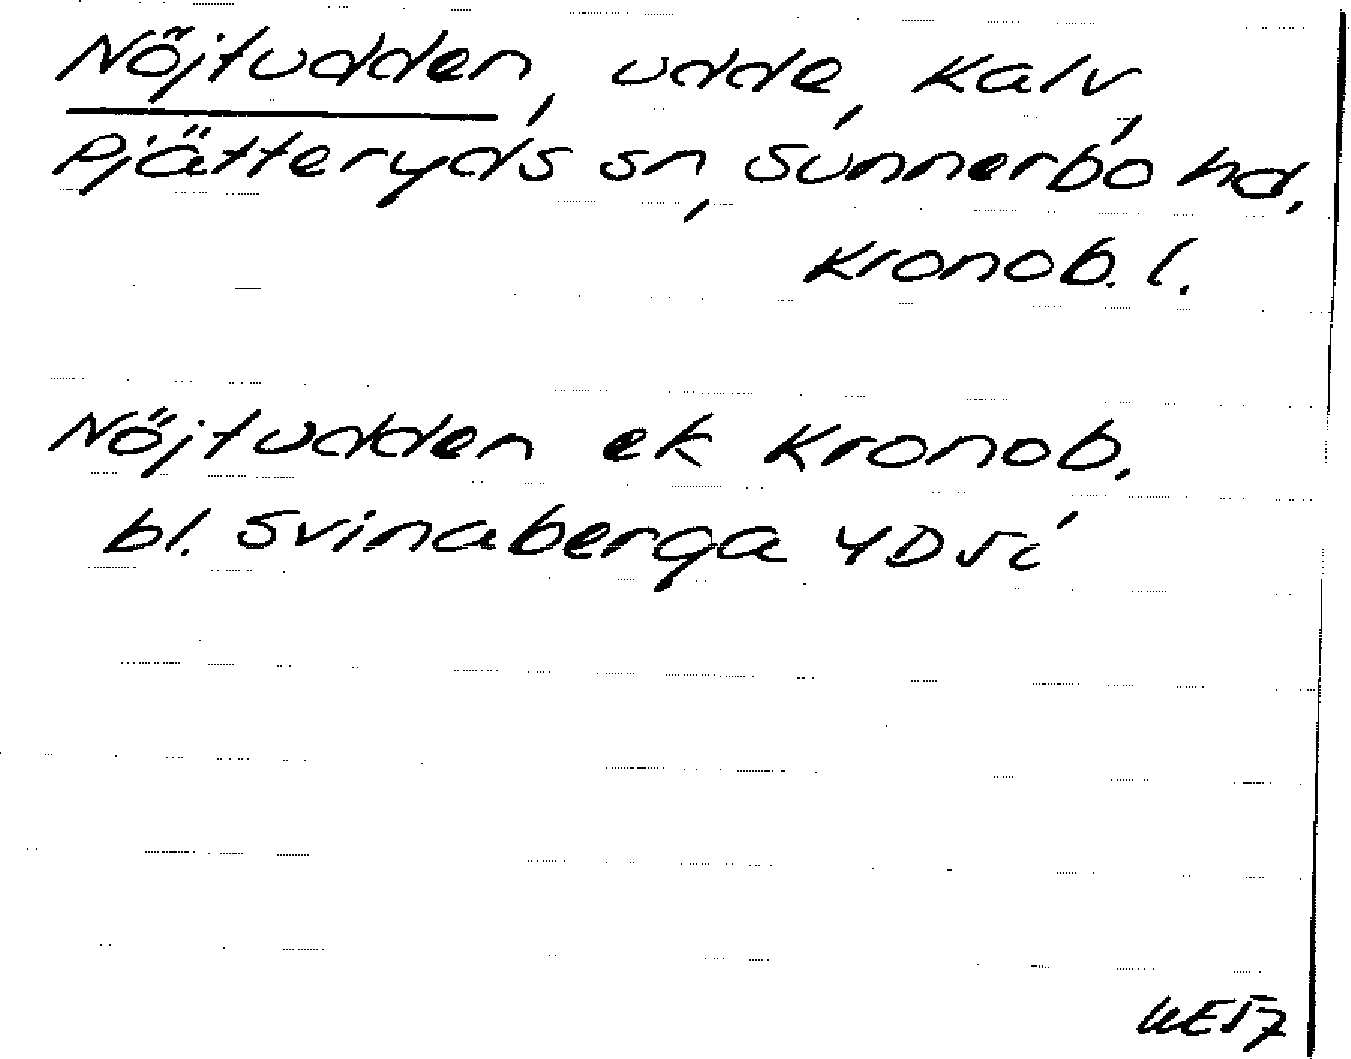 Nöjtudden, udde, Kalv,
Pjätteryds sn, Sunnerbo hd,
Kronob. l.
Nöjtudden ek Kronob.
bl. Svinaberga 4D5c